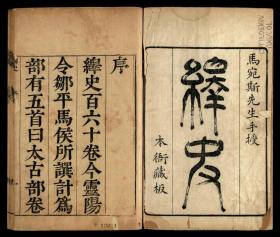 馬宛斯先生手授
繹史
本衙藏板
序
繹史百六十卷今靈陽
令鄒平馬侯所譔計爲
部有五首曰太古部卷